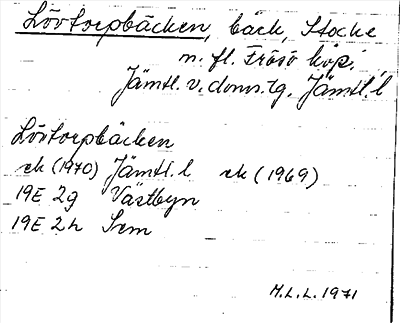 Lövtorpbäcken, bäck, Stocke
m. fl. Frösö köp.
Jämtl. v. doms.tg. Jämtl. l
Lövtorpbäcken
ek (1970) Jämtl. l ek (1969)
19E 2g Västbyn
19E 2h Sem
M.L.L. 1971